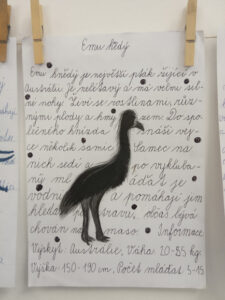 Emu hnědý
Emu hnědý je největší pták žijící v
Austrálii. Je nelétavý a má velmi sil-
né nohy. Živí se rostlinami, růz-
nými plody a hmyzem. Do spo-
lečného hnízda snáší vej-
ce několik samic. Samec na
nich sedí a po vyklubá-
ní mláďat je
vodí a pomáhá jim
hledat potravu, občas bývá
chován na maso. Informace
Výskyt: Austrálie, Váha 20-55 kg
Výška: 150-190 cm, Počet mláďat 5-15